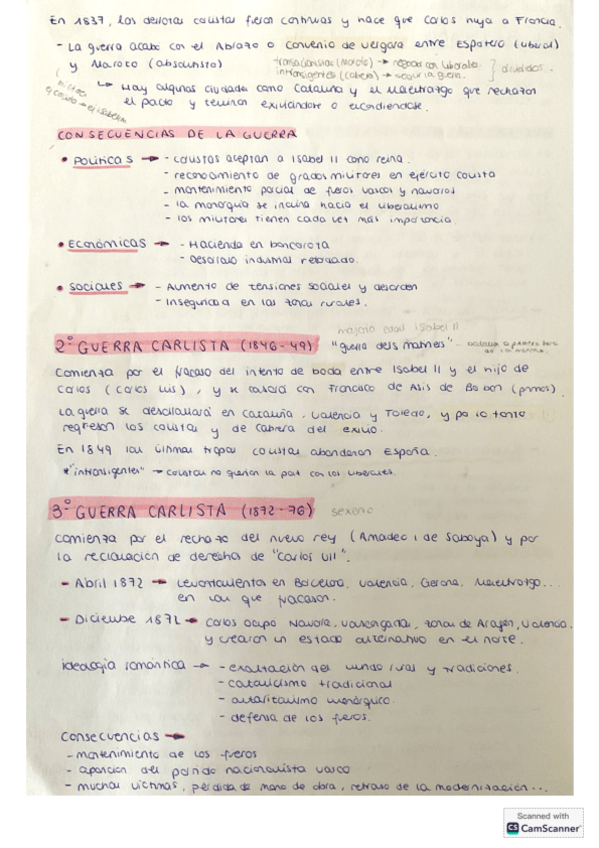 En 1837, las derrotas carlistas fueron continuas y hace que Carlos huya a Francia.
- La guerra acaba con el Abrazo o convenio de Vergara entre Espartero (liberal)
y Maroto (absolutista)
transaccionistas (Maroto) → negociar con liberales.
intransigentes (Cabrera) → seguir la guerra.
} divididos.
↳ Hay algunas ciudades como Cataluña y el Maestrazgo que rechazan
el pacto y terminan exiliándose o escondiéndose.
CONSECUENCIAS DE LA GUERRA
• POLITICAS → - carlistas aceptan a Isabel II como reina.
- reconocimiento de grados militares en ejército carlista
- mantenimiento parcial de fueros vascos y navarros
- la monarquía se inclina hacia el liberalismo
- los militares tienen cada vez más importancia.
• Económicas → - Hacienda en bancarrota
- Desarrollo industrial retrasado.
• Sociales → - Aumento de tensiones sociales y desorden
- Inseguridad en las zonas rurales.
mayoría edad Isabel II
2º GUERRA CARLISTA (1846-49) "guerra dels matiners"
Comienza por el fracaso del intento de boda entre Isabel II y el hijo de
Carlos (Carlos Luis), y se casará con Francisco de Asis de Borbon (primos).
La guerra se desarrollará en Cataluña, Valencia y Toledo, y por lo tanto
regresan los carlistas y de Cabrera del exilio.
En 1849 las últimas tropas carlistas abandonan España.
*"intransigentes" → carlistas no querían la paz con los liberales.
3º GUERRA CARLISTA (1872-76) sexenio
Comienza por el rechazo del nuevo rey (Amadeo I de Saboya) y por
la reclamación de derechos de "Carlos VII".
- Abril 1872 → Levantamientos en Barcelona, Valencia, Gerona, Maestrazgo...
en los que fracasan.
- Diciembre 1872 → Carlos ocupo Navarra, Vascongadas, zonas de Aragón, Valencia.
y crearon un estado alternativo en el norte.
Ideología romántica → - exaltación del mundo rural y tradiciones.
- catolicismo tradicional
- autoritarismo monárquico
- defensa de los fueros.
Consecuencias →
- mantenimiento de los fueros
- aparición del partido nacionalista vasco
- muchas víctimas, pérdida de mano de obra, retraso de la modernización...
Scanned with
CS CamScanner